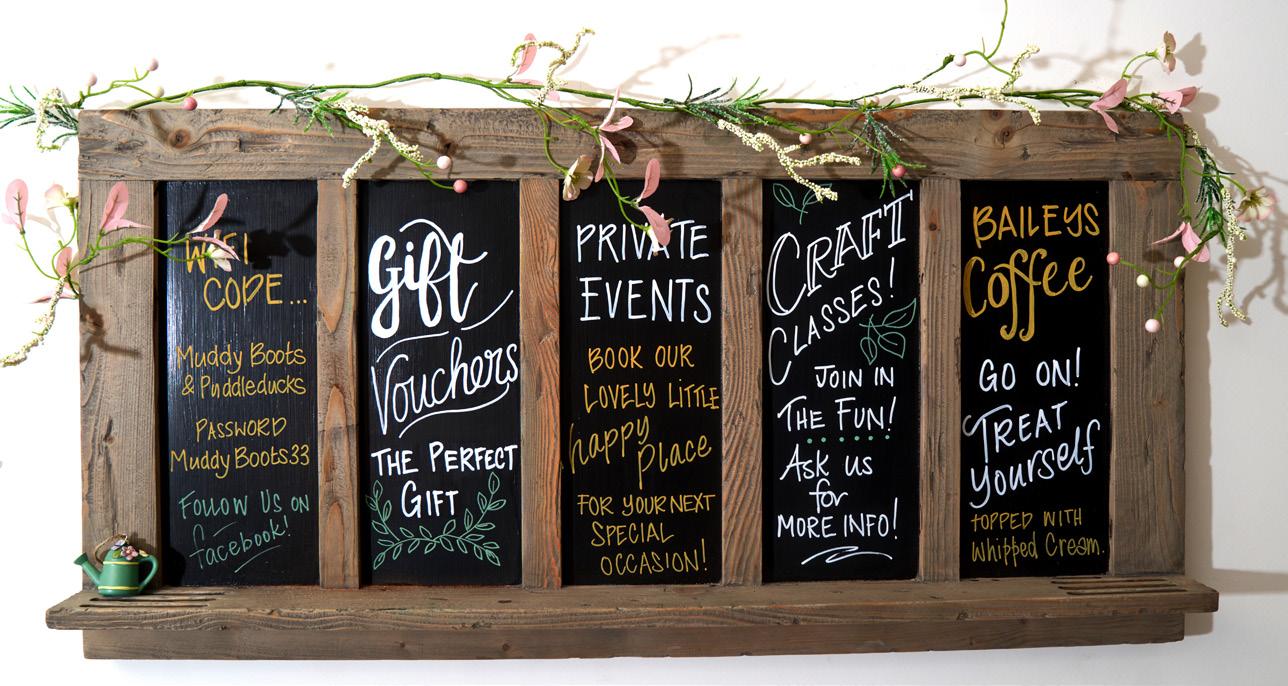 WIFI
CODE...
Muddy Boots
& Puddleducks
PASSWORD
MuddyBoots33
FOLLOW US ON
facebook!
Gift
Vouchers
THE PERFECT
GIFT
PRIVATE
EVENTS
BOOK OUR
LOVELY LITTLE
happy
place
FOR YOUR NEXT
SPECIAL
OCCASION!
CRAFT
CLASSES!
JOIN IN
THE FUN!
Ask us
for
MORE INFO!
BAILEYS
Coffee
GO ON!
TREAT
yourself
TOPPED WITH
Whipped Cream.